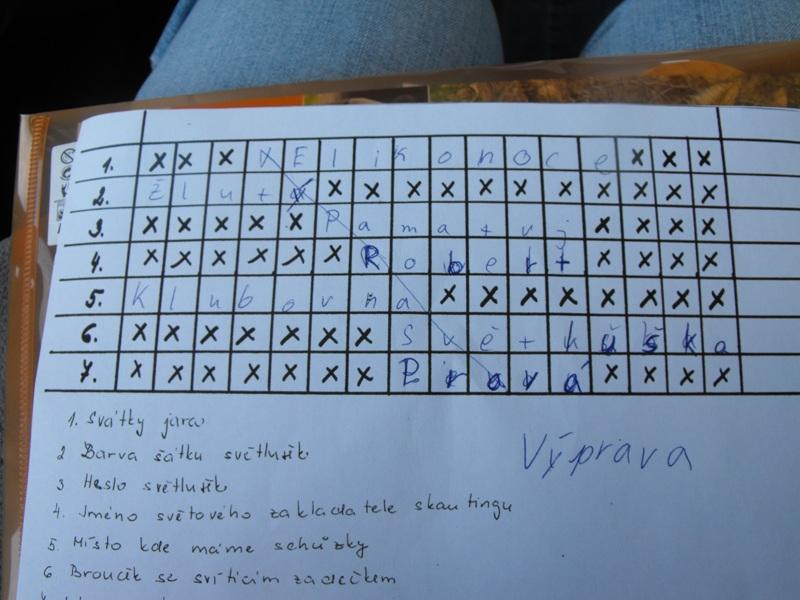 1. X X X V E l i k o n o c e X X X
2. ž l u t á X X X X X X X X X X X
3. X X X X X P a m a t u j X X X X
4. X X X X X X R o b e r t X X X X
5. K l u b o v n a X X X X X X X X
6. X X X X X X X S v ě t l u š k a
7. X X X X X X X P r a v á X X X X
1. Svátky jara
2 Barva šátku světlušk
3 Heslo světlušk
Výprava
4. Jméno světového zakladatele skautingu
5. Místo kde máme schůzky
6 Broučk se svítícím zadečkem